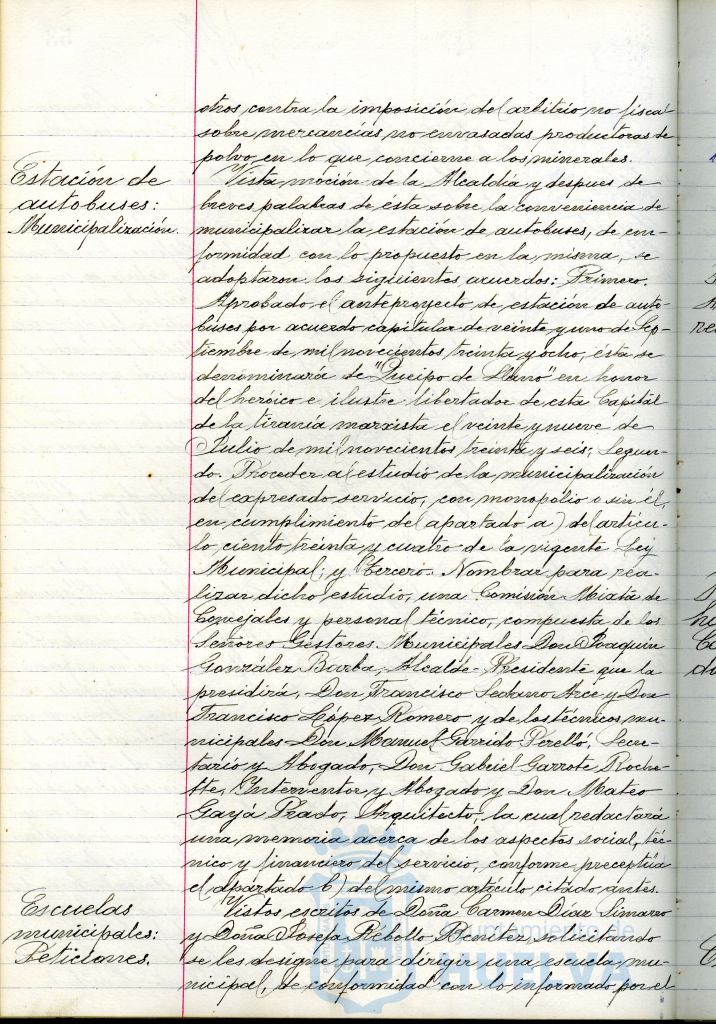 otros, contra la imposición del arbitrio no fiscal
sobre mercancías no envasadas productoras de
polvo, en lo que concierne a los minerales.
Estación de
autobuses:
Municipalización.
Vista moción de la Alcaldía y despues de
breves palabras de ésta sobre la conveniencia de
municipalizar la estación de autobuses, de con-
formidad con lo propuesto en la misma, se
adoptaron los siguientes acuerdos: Primero.
Aprobado el anteproyecto de estación de auto-
buses por acuerdo capitular de veinte y uno de Sep-
tiembre de mil novecientos treinta y ocho, ésta se
denominará de "Queipo de Llano" en honor
del heróico e ilustre libertador de esta Capital
de la tiranía marxista el veinte y nueve de
Julio de mil novecientos treinta y seis; Segun-
do. Proceder al estudio de la municipalización
del expresado servicio, con monopolio o sin él,
en cumplimiento del apartado a) del artícu-
lo ciento treinta y cuatro de la vigente Ley
Municipal; y Tercero. Nombrar para rea-
lizar dicho estudio, una Comisión Mixta de
Concejales y personal técnico, compuesta de los
Señores Gestores Municipales Don Joaquín
González Barba, Alcalde-Presidente que la
presidirá, Don Francisco Sedano Arce y Don
Francisco López Romero, y de los técnicos mu-
nicipales Don Manuel Garrido Perelló, Secre-
tario y Abogado, Don Gabriel Garrote Roche-
tte, Interventor y Abogado y Don Mateo
Gayá Prado, Arquitecto, la cual redactará
una memoria acerca de los aspectos social, téc-
nico y financiero del servicio, conforme preceptúa
el apartado b) del mismo artículo citado antes.
Escuelas
municipales:
Peticiones.
Vistos escritos de Doña Carmen Díaz Simarro
y Doña Josefa Rebollo Benítez, solicitando
se les designe para dirigir una escuela mu-
nicipal, de conformidad con lo informado por el
Ayuntamiento de
HUELVA